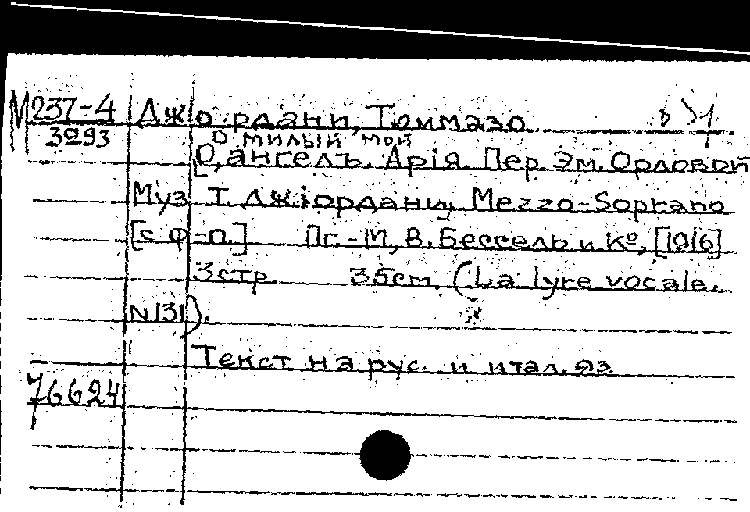 М 237-4 Джордани, Томмазо
3293 О милый мой
[О, ангелъ. Арія. Пер. Эм. Орловой
Муз. Т. Джіордани, Mezzo-Soprano
[с ф-п.] Пг.-М., В. Бессель и Kº, [1916]
3 стр. 35cm. (La lyre vocale.
N 131).
Текст на рус. и итал. яз.
76624